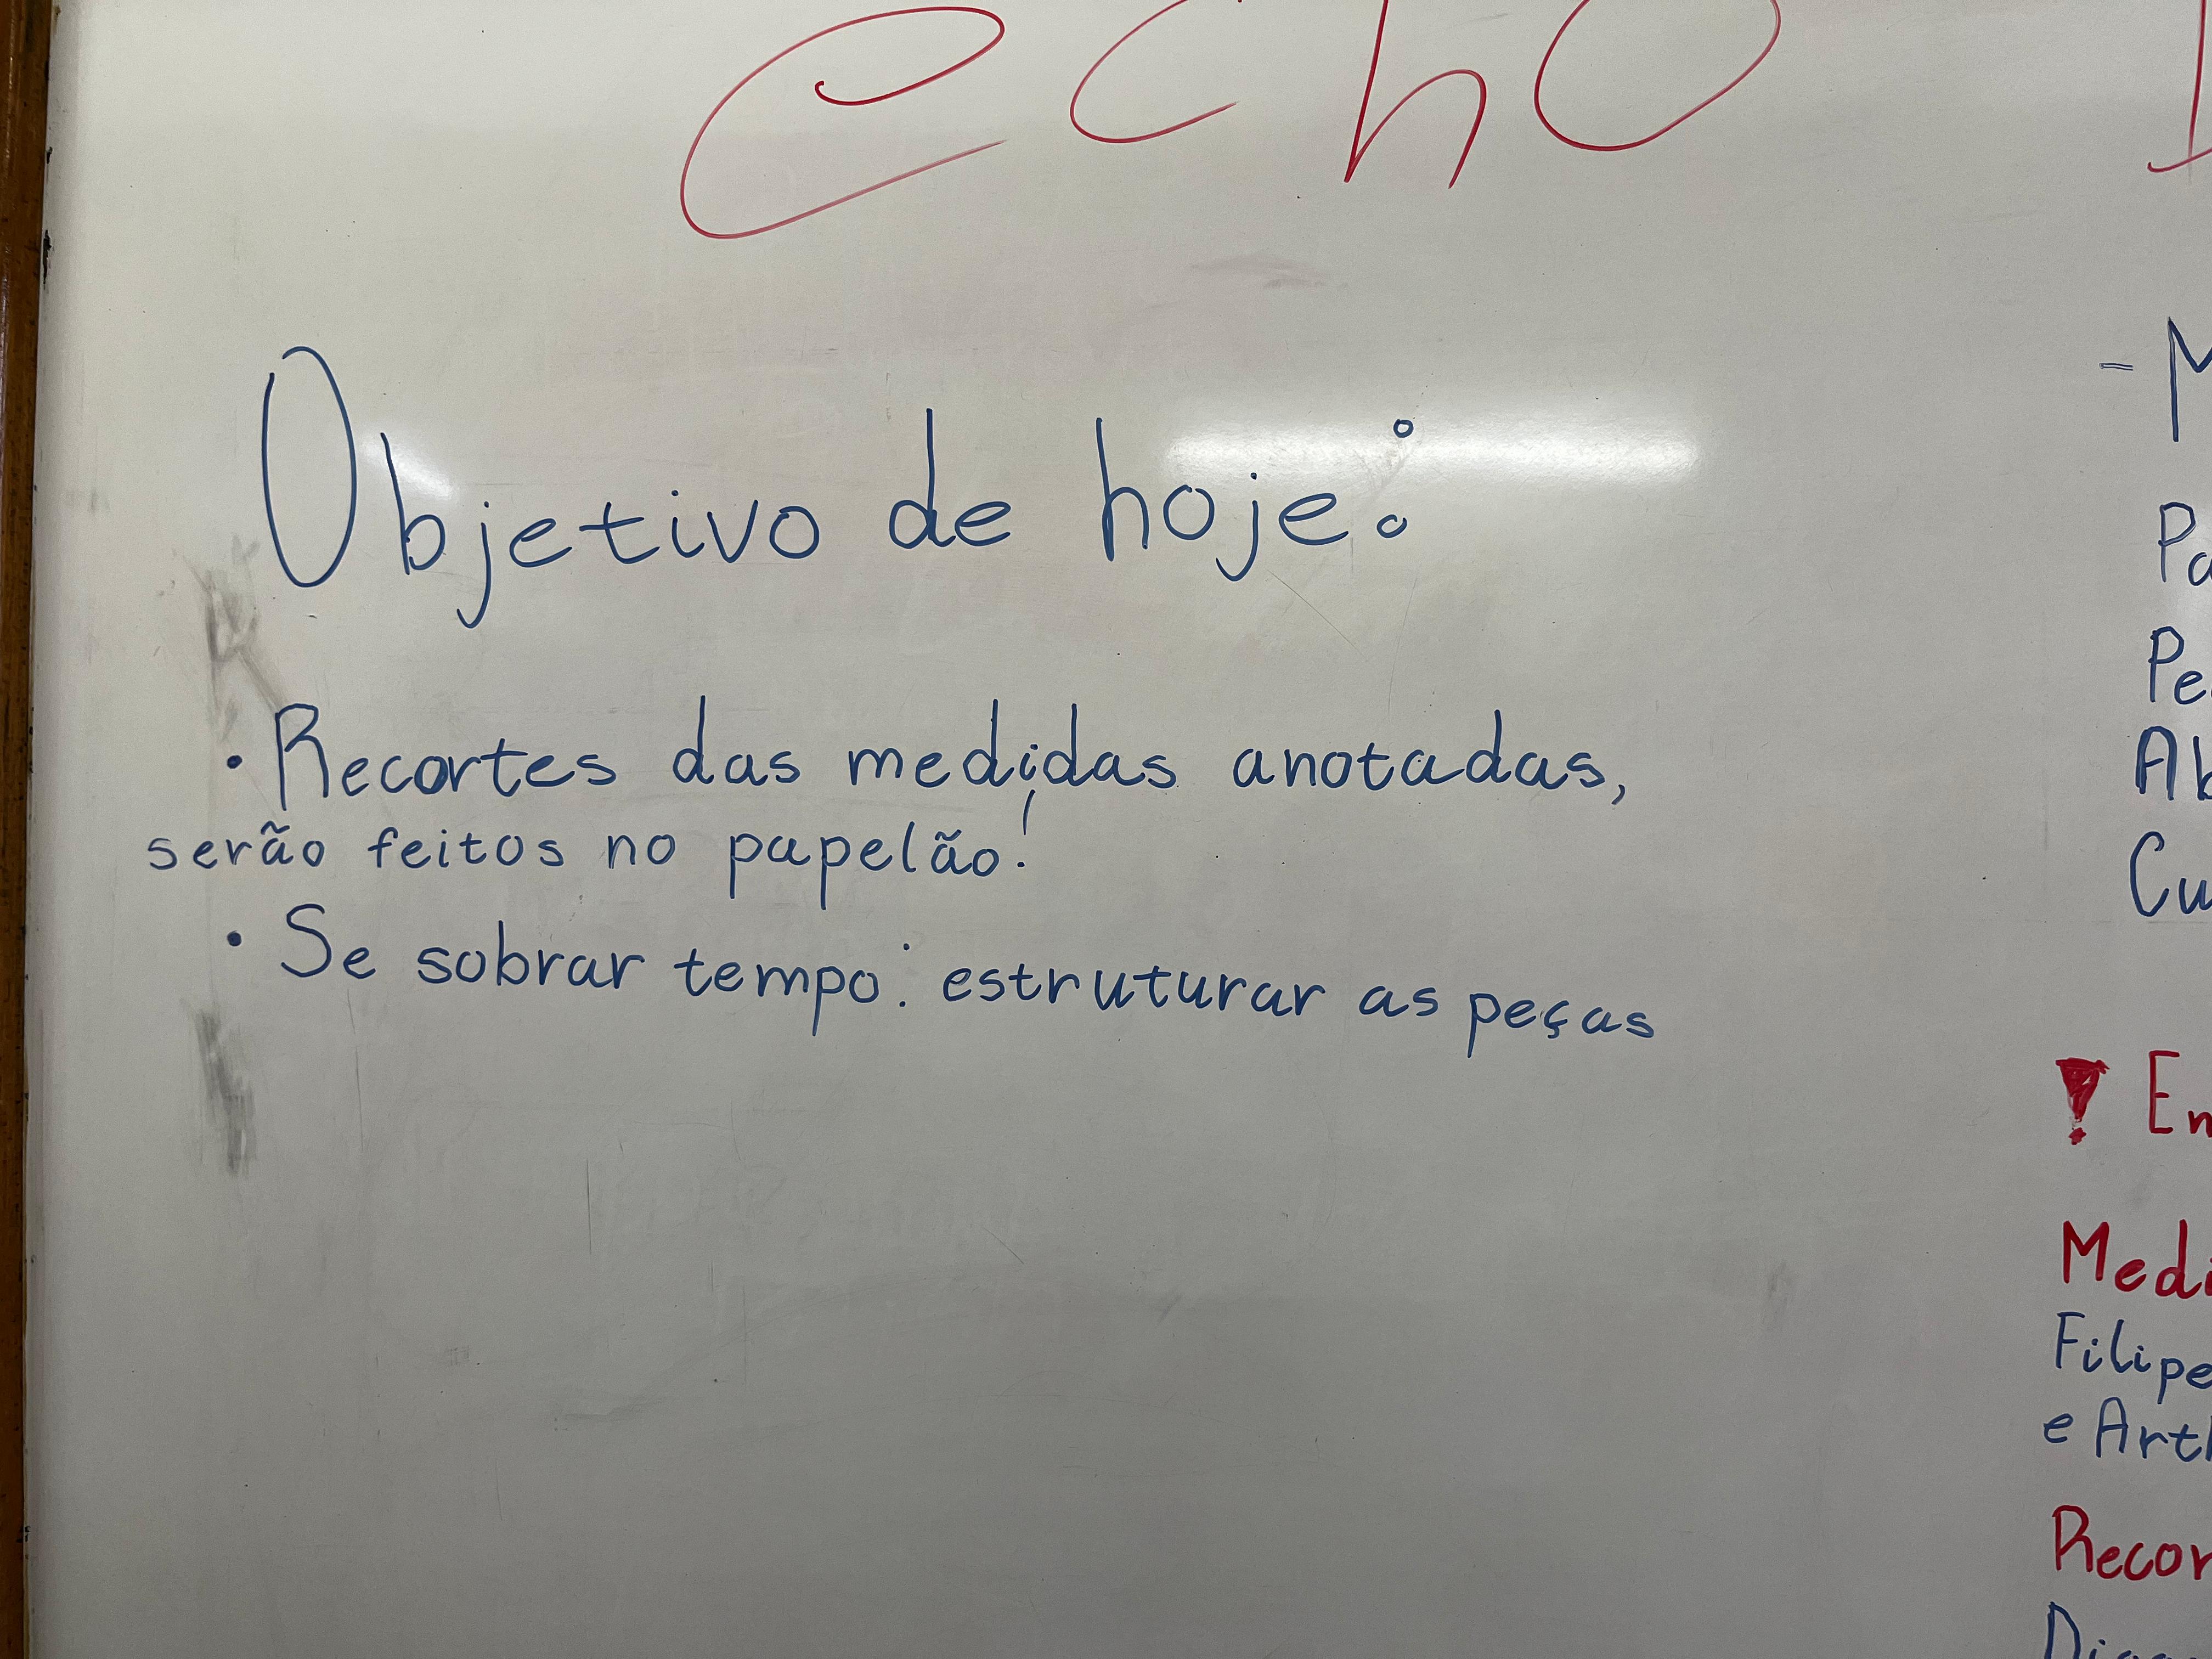 echo
Objetivo de hoje:
• Recortes das medidas anotadas,
serão feitos no papelão!
• Se sobrar tempo: estruturar as peças
- M
Pa
Pe
Ab
Cu
! En
Medi
Filipe
e Arth
Recor